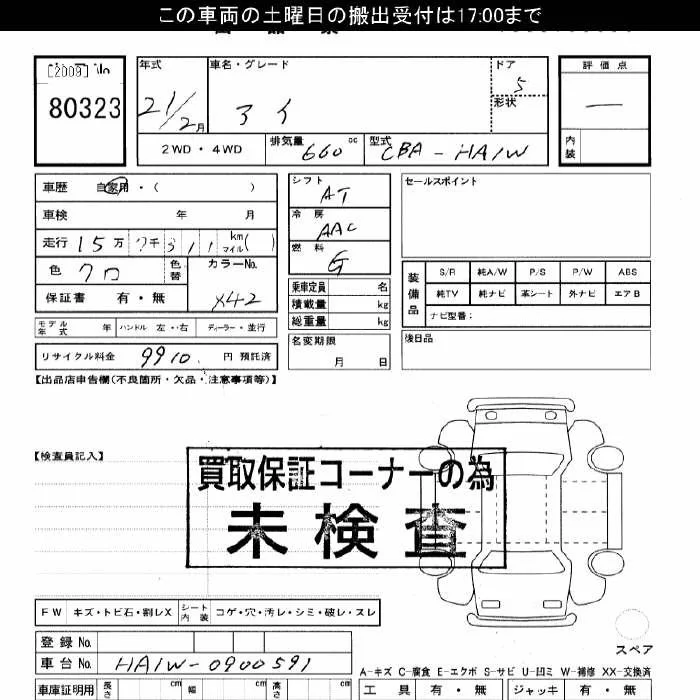 この車両の土曜日の搬出受付は17:00まで
[2009]
80323
年式 車名・グレード ドア 評価点
21/2月 アイ 5 —
形状
2WD・4WD 排気量 660cc 型式 CBA-HA1W 内装
車歴 自家用・( )
車検 年 月
走行 15万7千311 km マイル( )
色 クロ 色替 カラーNo. X42
保証書 有・無
モデル年式 年 ハンドル 左・右 ディーラー・並行
リサイクル料金 9910 円 預託済
シフト AT
冷房 AAC
燃料 G
乗車定員 名
積載量 kg
総重量 kg
名変期限 月 日
セールスポイント
装備品 S/R 純A/W P/S P/W ABS
純TV 純ナビ 革シート 外ナビ エアB
ナビ型番:
後日品
【出品店申告欄(不良箇所・欠品・注意事項等)】
【検査員記入】
買取保証コーナーの為
未検査
FW キズ・トビ石・割レX シート内装 コゲ・穴・汚レ・シミ・破レ・スレ
登録No.
車台No. HA1W-0900591
スペア
A-キズ C-腐食 E-エクボ S-サビ U-凹ミ W-補修 XX-交換済
車庫証明用 長さ cm 幅 cm 高さ cm 工具 有・無 ジャッキ 有・無